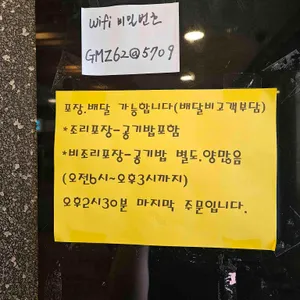 Wifi 비밀번호
GMZ62@5709
포장.배달 가능합니다(배달비고객부담)
*조리포장-공기밥포함
*비조리포장-공기밥 별도.양많음
(오전6시~오후3시까지)
오후2시30분 마지막 주문입니다.